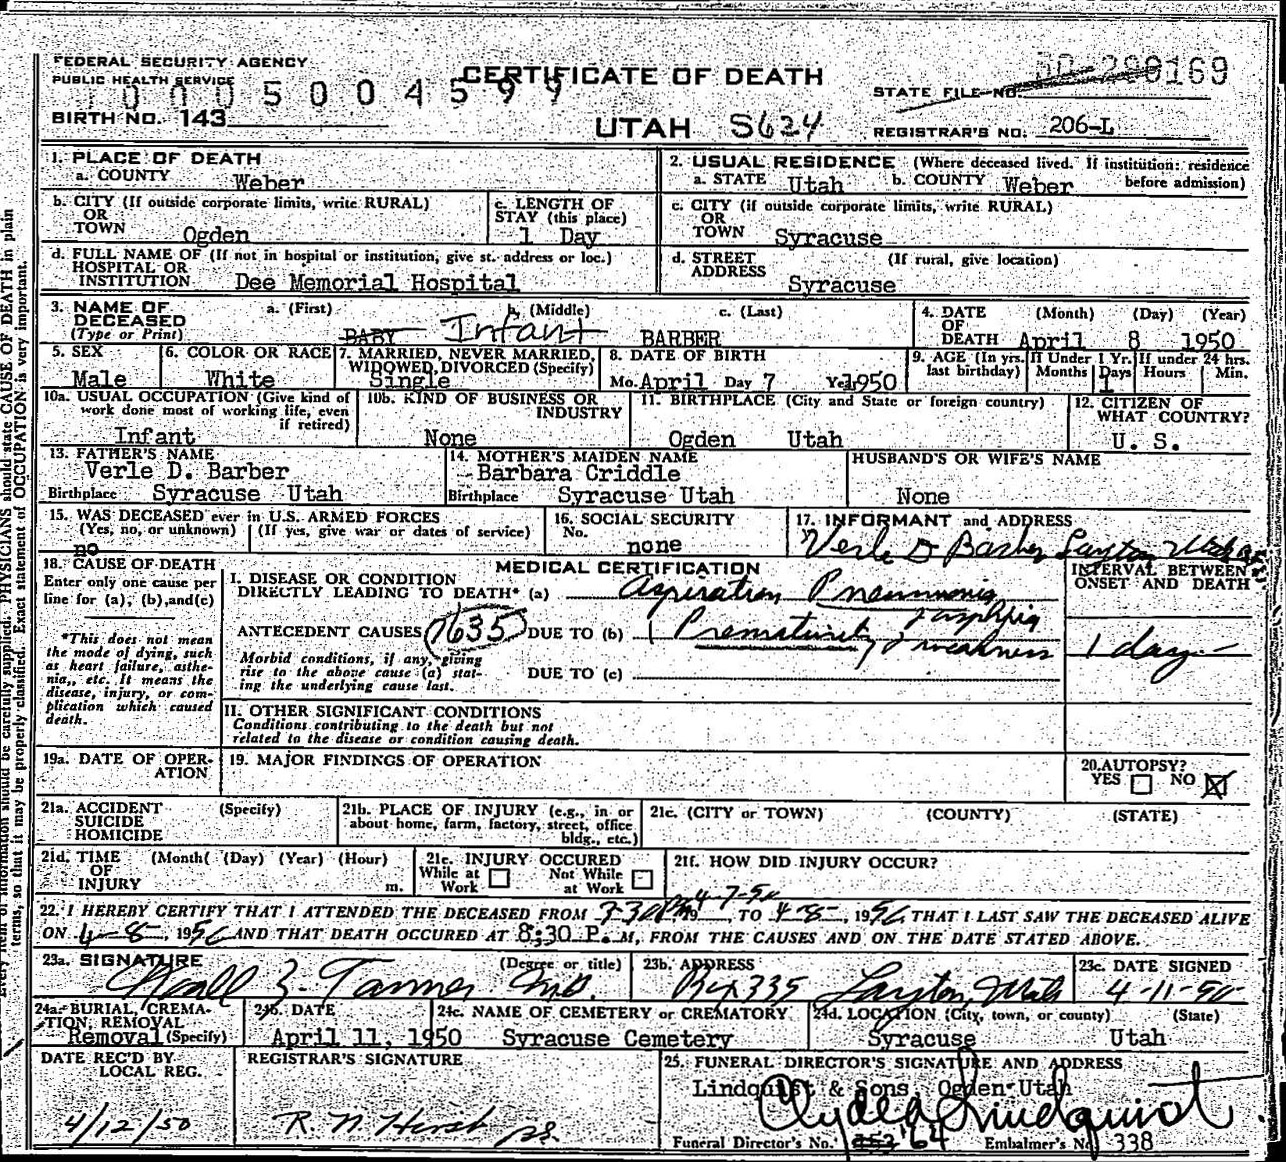 FEDERAL SECURITY AGENCY
PUBLIC HEALTH SERVICE
CERTIFICATE OF DEATH
STATE FILE NO.
BIRTH NO. 143
UTAH S624
REGISTRAR'S NO. 206-L
1. PLACE OF DEATH
a. COUNTY Weber
2. USUAL RESIDENCE (Where deceased lived. If institution: residence before admission)
a. STATE Utah b. COUNTY Weber
b. CITY (If outside corporate limits, write RURAL)
OR
TOWN Ogden
c. LENGTH OF
STAY (this place)
1 Day
c. CITY (if outside corporate limits, write RURAL)
OR
TOWN Syracuse
d. FULL NAME OF (If not in hospital or institution, give st. address or loc.)
HOSPITAL OR
INSTITUTION Dee Memorial Hospital
d. STREET (If rural, give location)
ADDRESS Syracuse
3. NAME OF a. (First) b. (Middle) c. (Last)
DECEASED
(Type or Print) BABY Infant BARBER
4. DATE (Month) (Day) (Year)
OF
DEATH April 8 1950
5. SEX
Male
6. COLOR OR RACE
White
7. MARRIED, NEVER MARRIED,
WIDOWED, DIVORCED (Specify)
Single
8. DATE OF BIRTH
Mo. April Day 7 Year 1950
9. AGE (In yrs. last birthday)
If Under 1 Yr. Months Days
1
If under 24 hrs. Hours Min.
10a. USUAL OCCUPATION (Give kind of
work done most of working life, even
if retired)
Infant
10b. KIND OF BUSINESS OR
INDUSTRY
None
11. BIRTHPLACE (City and State or foreign country)
Ogden Utah
12. CITIZEN OF
WHAT COUNTRY?
U. S.
13. FATHER'S NAME
Verle D. Barber
Birthplace Syracuse Utah
14. MOTHER'S MAIDEN NAME
Barbara Criddle
Birthplace Syracuse Utah
HUSBAND'S OR WIFE'S NAME
None
15. WAS DECEASED ever in U.S. ARMED FORCES
(Yes, no, or unknown) (If yes, give war or dates of service)
no
16. SOCIAL SECURITY
No.
none
17. INFORMANT and ADDRESS
Verle D Barber Layton Utah
18. CAUSE OF DEATH
Enter only one cause per
line for (a), (b), and (c)
*This does not mean
the mode of dying, such
as heart failure, asthe-
nia, etc. It means the
disease, injury, or com-
plication which caused
death.
MEDICAL CERTIFICATION
I. DISEASE OR CONDITION
DIRECTLY LEADING TO DEATH* (a) Aspiration Pneumonia
ANTECEDENT CAUSES 7635 DUE TO (b) Prematurity & weakness
Morbid conditions, if any, giving
rise to the above cause (a) stat-
ing the underlying cause last.
DUE TO (c)
INTERVAL BETWEEN
ONSET AND DEATH
1 day
II. OTHER SIGNIFICANT CONDITIONS
Conditions contributing to the death but not
related to the disease or condition causing death.
19a. DATE OF OPER-
ATION
19. MAJOR FINDINGS OF OPERATION
20. AUTOPSY?
YES NO
21a. ACCIDENT (Specify)
SUICIDE
HOMICIDE
21b. PLACE OF INJURY (e.g., in or
about home, farm, factory, street, office
bldg., etc.)
21c. (CITY or TOWN) (COUNTY) (STATE)
21d. TIME (Month) (Day) (Year) (Hour)
OF
INJURY m.
21e. INJURY OCCURED
While at Work Not While at Work
21f. HOW DID INJURY OCCUR?
4-7-50
22. I HEREBY CERTIFY THAT I ATTENDED THE DECEASED FROM 3:30 PM, 19, TO 4-8-, 1950, THAT I LAST SAW THE DECEASED ALIVE
ON 4-8-, 1950 AND THAT DEATH OCCURED AT 8:30 P. M, FROM THE CAUSES AND ON THE DATE STATED ABOVE.
23a. SIGNATURE (Degree or title)
Z. Tanner M.D.
23b. ADDRESS
Box 335 Layton, Utah
23c. DATE SIGNED
4-11-50
24a. BURIAL, CREMA-
TION, REMOVAL
Removal (Specify)
24b. DATE
April 11, 1950
24c. NAME OF CEMETERY or CREMATORY
Syracuse Cemetery
24d. LOCATION (City, town, or county) (State)
Syracuse Utah
DATE REC'D BY
LOCAL REG.
4/12/50
REGISTRAR'S SIGNATURE
R. N. Hirst
25. FUNERAL DIRECTOR'S SIGNATURE AND ADDRESS
Lindquist & Sons Ogden Utah
Clyde Lindquist
Funeral Director's No. 164 Embalmer's No. 338